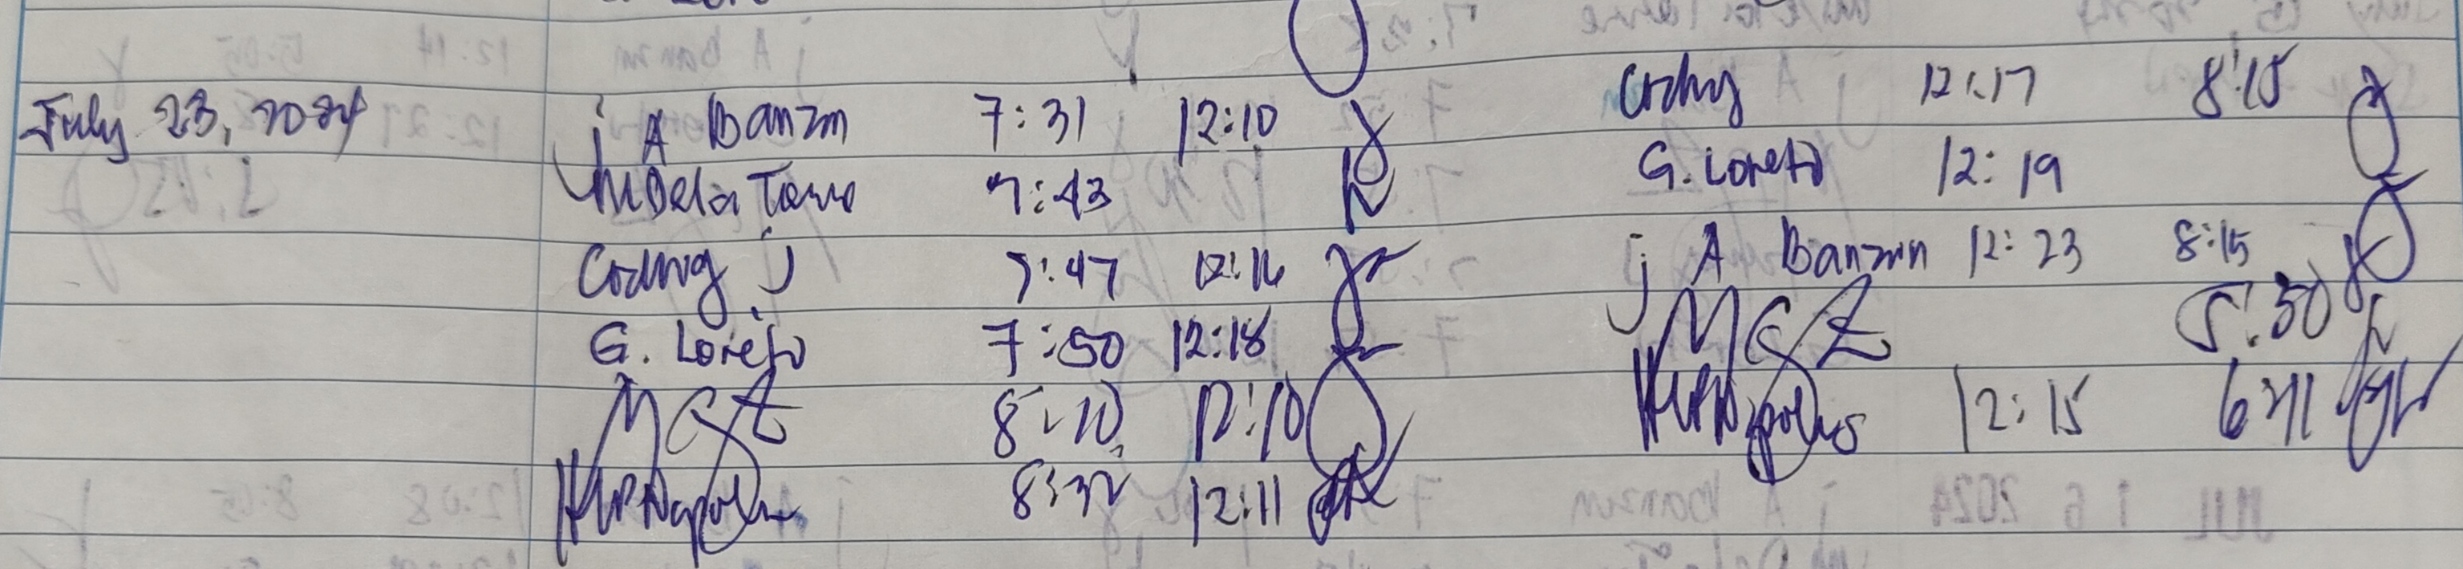 July 23, 2024
j A Banzon 7:31 12:10
M Dela Torre 7:43
Coding J 7:47 12:16
G. Loreto 7:50 12:18
MCZ 8:10 12:10
8:32 12:11
Coding 12:17 8:15
G. Loreto 12:19
j A Banzon 12:23 8:15
MCZ 5:30
12:15 6:11